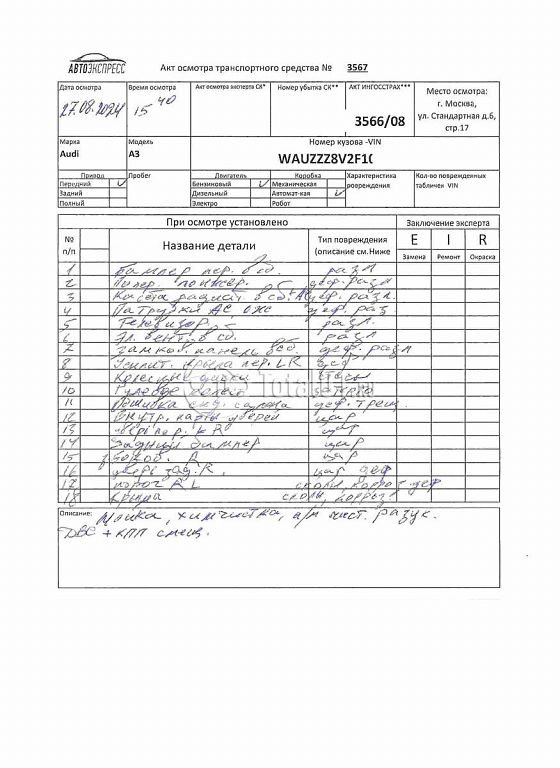 АВТОЭКСПРЕСС
Акт осмотра транспортного средства № 3567
Дата осмотра
27.08.2024
Время осмотра
15 40
Акт осмотра эксперта СК*
Номер убытка СК**
АКТ ИНГОССТРАХ***
3566/08
Место осмотра:
г. Москва,
ул. Стандартная д.6,
стр.17
Марка
Audi
Модель
A3
Номер кузова -VIN
WAUZZZ8V2F1(
Привод
Передний
Задний
Полный
Пробег
Двигатель
Бензиновый
Дизельный
Электро
Коробка
Механическая
Автомат-кая
Робот
Характеристика
повреждения
Кол-во поврежденных
табличек VIN
При осмотре установлено
Заключение эксперта
№
п/п
Название детали
Тип повреждения
(описание см.Ниже
E I R
Замена Ремонт Окраска
1 Бампер пер. в сб. разл
2 деф. разл
3 Кассета радиат. в сб. деф. разл.
4 Патрубки АС, ОЖ деф. раз
5 Телевизор. разл.
6 Эл. вент. в сб. разл
7 замков. панель в сб. деф. разл
8 Усилит. крыла пер. LR
9 Колесные диски
10 Рулевое колесо
11 деф. трещ
12 Внутр. карты дверей цар
13 дверь пер. R цар
14 Задний бампер цар
15 R цар
16 дверь зад. R. цар деф
17 порог R L сколы, корроз. деф
18 Крыша сколы, корроз
Описание: Мойка, химчистка, а/м част. разук.
ДВС + КПП смещ.